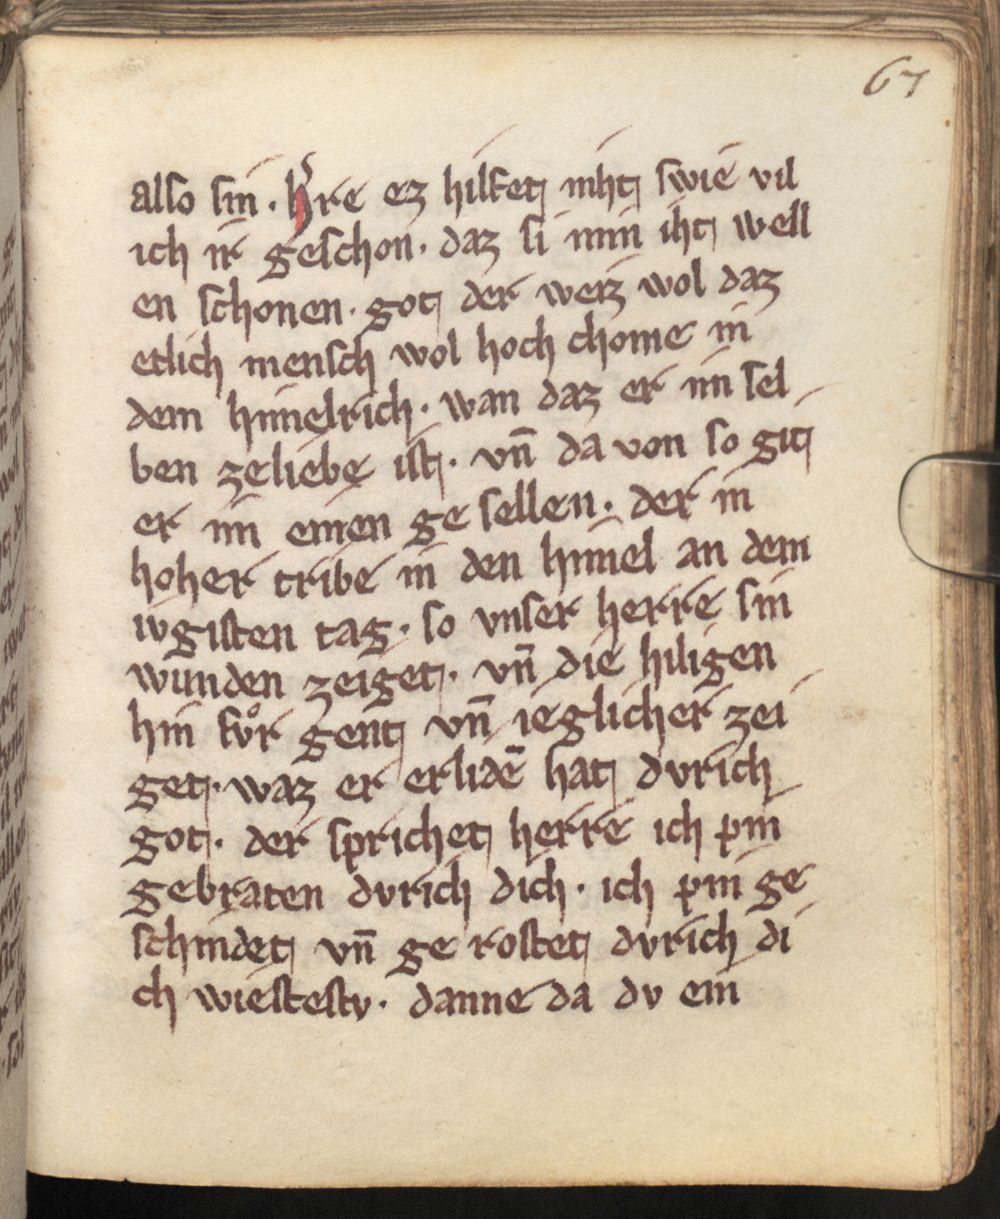 67
also sin · h͛re ez hilfet niht swie vil
ich ir geschon · daz si min iht well
en schonen · got der weiz wol daz
etlich mensch wol hoch chome in
dem himelrich · wan daz er im sel
ben zeliebe ist · vn̄ da von so git
er im einen ge sellen · der in
hoher tribe in den himel an dem
ivgisten tag · so vnser herre sin
wunden zeiget · vn̄ die hiligen
hin fvͦr gent vn̄ ieglicher zei
get · waz er erlidē hat dvrich
got · der sprichet herre ich pin
gebraten dvrich dich · ich pin ge
schindet vn̄ ge rostet dvrich di
ch wiestestv · danne da dv ein